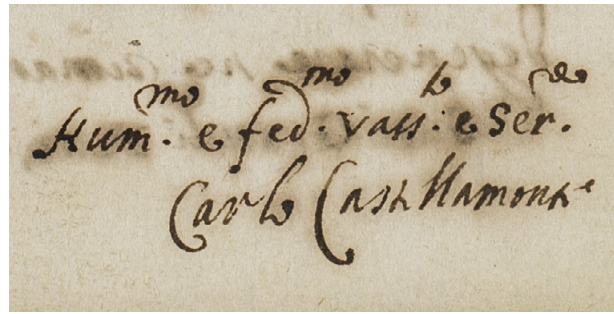 Hum.mo e fed.mo vass:lo e Ser.re
Carlo Castellamonte